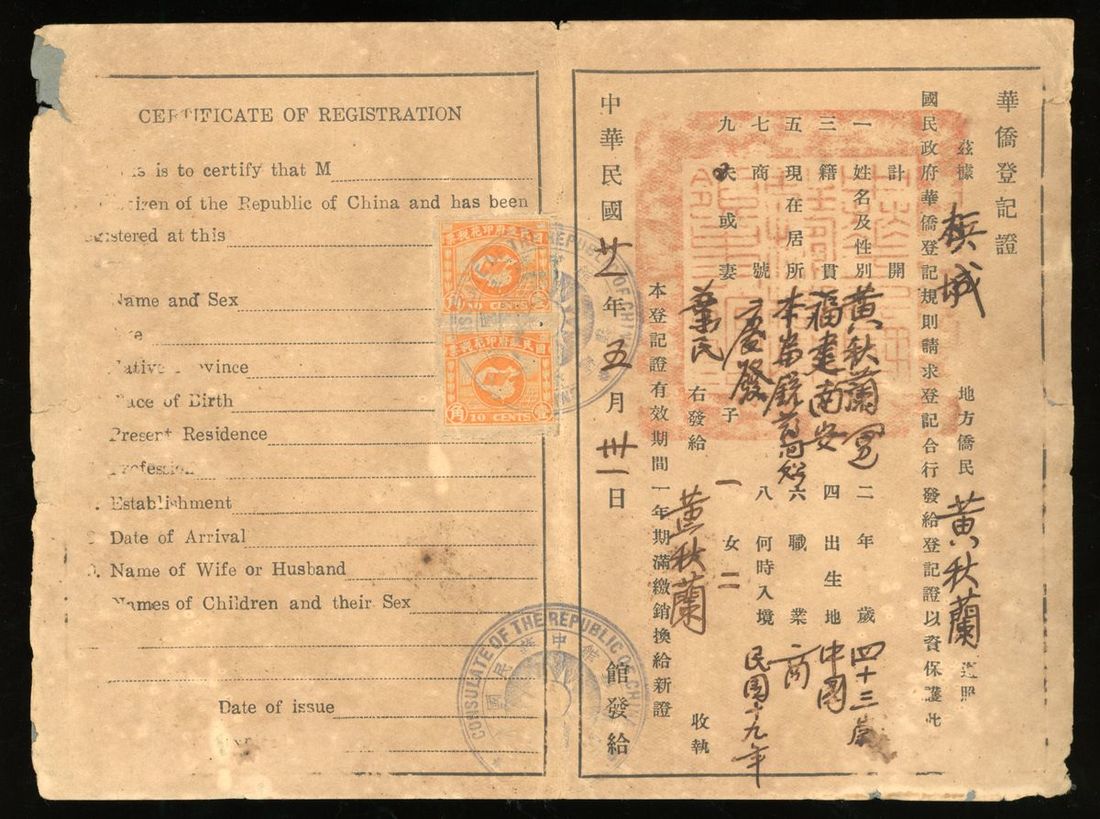 CERTIFICATE OF REGISTRATION
is to certify that M
of the Republic of China and has been
at this
Name and Sex
Native Province
Place of Birth
Present Residence
Profession
Establishment
Date of Arrival
Name of Wife or Husband
Names of Children and their Sex
Date of issue
國民政府印花稅票
壹角
10 CENTS
國民政府印花稅票
壹角
10 CENTS
THE REPUBLIC OF CHINA
CONSULATE OF THE REPUBLIC OF CHINA
華僑登記證
茲據 檳城 地方僑民 黃秋蘭 遵照
國民政府華僑登記規則請求登記合行發給登記證以資保護此
計開
一 姓名及性別 黃秋蘭 二 年歲 四十三歲
三 籍貫 福建南安 四 出生地 中國
五 現在居所 本埠 六 職業 商
七 商號 慶發 八 何時入境 民國十九年
九 夫或妻 葉民 子 一 女 二
右發給 黃秋蘭 收執
本登記證有效期間一年期滿繳銷換給新證
中華民國 廿一 年 五 月 卅一 日 館發給